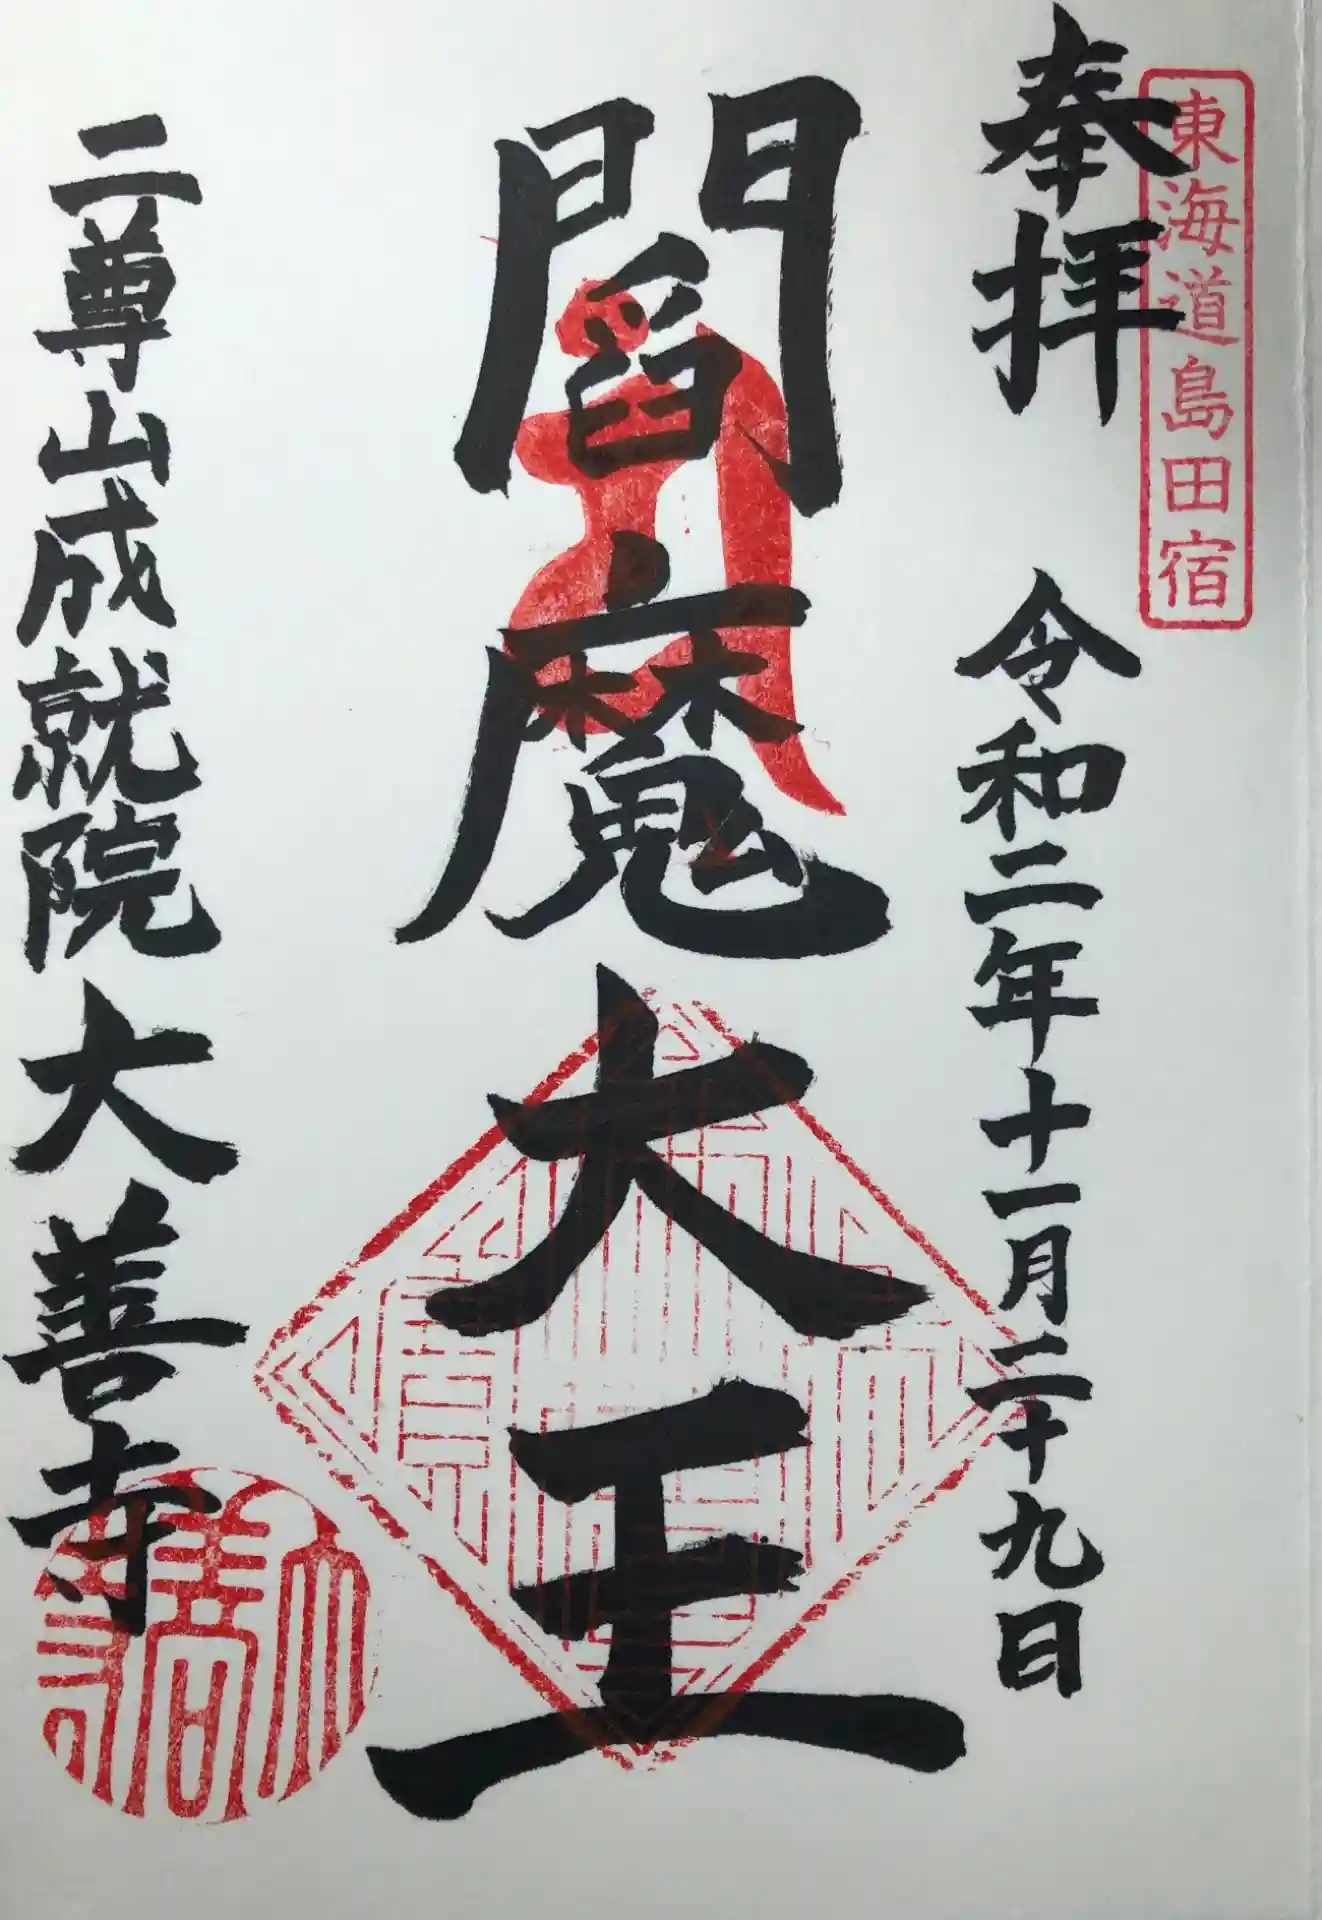 東海道島田宿
奉拝 令和二年十一月二十九日
閻魔大王
二尊山成就院大善寺